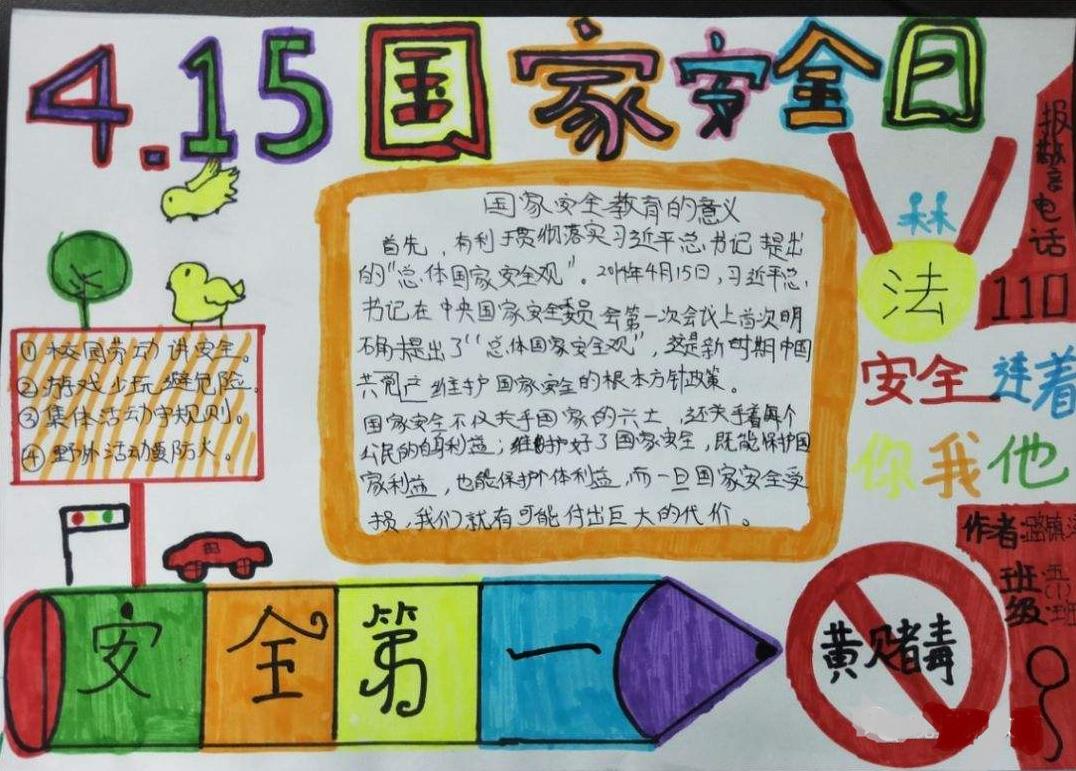 4.15国家安全日
报警电话
110
禁
法
安全连着
你我他
国家安全教育的意义
首先，有利于贯彻落实习近平总书记提出
的"总体国家安全观"。2014年4月15日，习近平总
书记在中央国家安全委员会第一次会议上首次明
确提出了"总体国家安全观"，这是新时期中国
共 产 维护国家安全的根本方针政策。
国家安全不仅关乎国家的 ，还关乎着每个
公民的 利益；维护好了国家安全，既能保护国
家利益，也能保护个体利益，而一旦国家安全受
损，我们就有可能付出巨大的代价。
①校园劳动讲安全。
②游戏少玩避危险。
③集体活动守规则。
④野外活动 防火。
安全第一
黄赌毒
作者:
班级 五(1)班